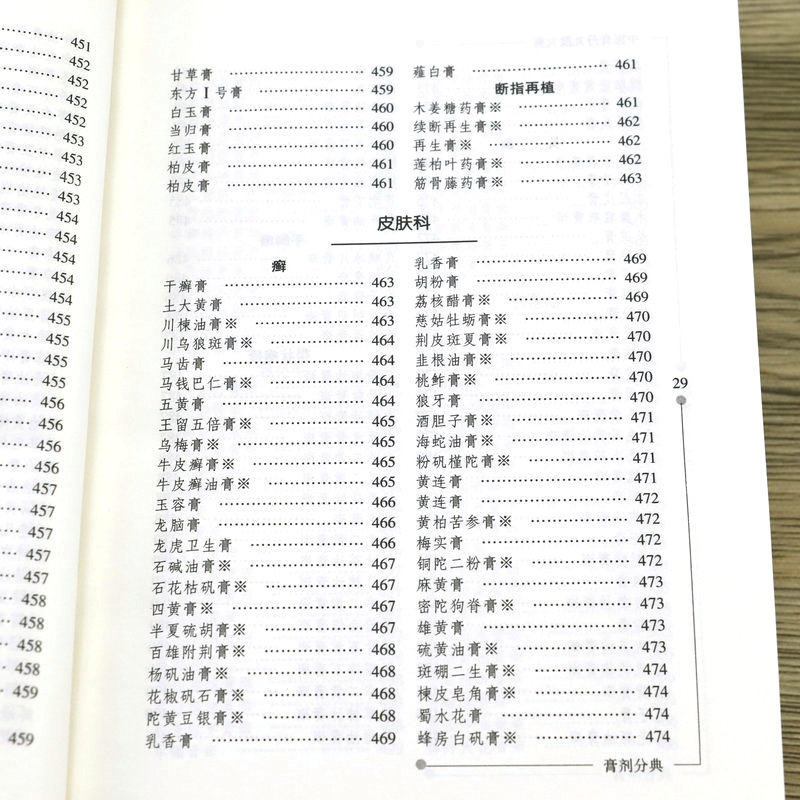 451
452
452
452
452
453
453
453
453
454
454
454
454
455
455
455
455
456
456
456
456
457
457
457
457
457
458
458
458
458
459
459
甘草膏 459
东方Ⅰ号膏 459
白玉膏 460
当归膏 460
红玉膏 460
柏皮膏 461
柏皮膏 461
薤白膏 461
断指再植
木姜糖药膏※ 461
续断再生膏※ 462
再生膏※ 462
莲柏叶药膏※ 462
筋骨藤药膏※ 463
皮肤科
癣
干癣膏 463
土大黄膏 463
川楝油膏※ 463
川乌狼斑膏※ 464
马齿膏 464
马钱巴仁膏※ 464
五黄膏 464
王留五倍膏※ 465
乌梅膏※ 465
牛皮癣膏※ 465
牛皮癣油膏※ 465
玉容膏 466
龙脑膏 466
龙虎卫生膏 466
石碱油膏※ 467
石花枯矾膏※ 467
四黄膏※ 467
半夏硫胡膏※ 467
百雄附荆膏※ 468
杨矾油膏※ 468
花椒矾石膏※ 468
陀黄豆银膏※ 468
乳香膏 469
乳香膏 469
胡粉膏 469
荔核醋膏※ 469
慈姑牡蛎膏※ 470
荆皮斑夏膏※ 470
韭根油膏※ 470
桃鲊膏※ 470
狼牙膏 470
酒胆子膏※ 471
海蛇油膏※ 471
粉矾槿陀膏※ 471
黄连膏 471
黄连膏 472
黄柏苦参膏※ 472
梅实膏 472
铜陀二粉膏※ 472
麻黄膏 473
密陀狗脊膏※ 473
雄黄膏 473
硫黄油膏※ 473
斑硼二生膏※ 474
楝皮皂角膏※ 474
蜀水花膏 474
蜂房白矾膏※ 474
29
膏剂分典